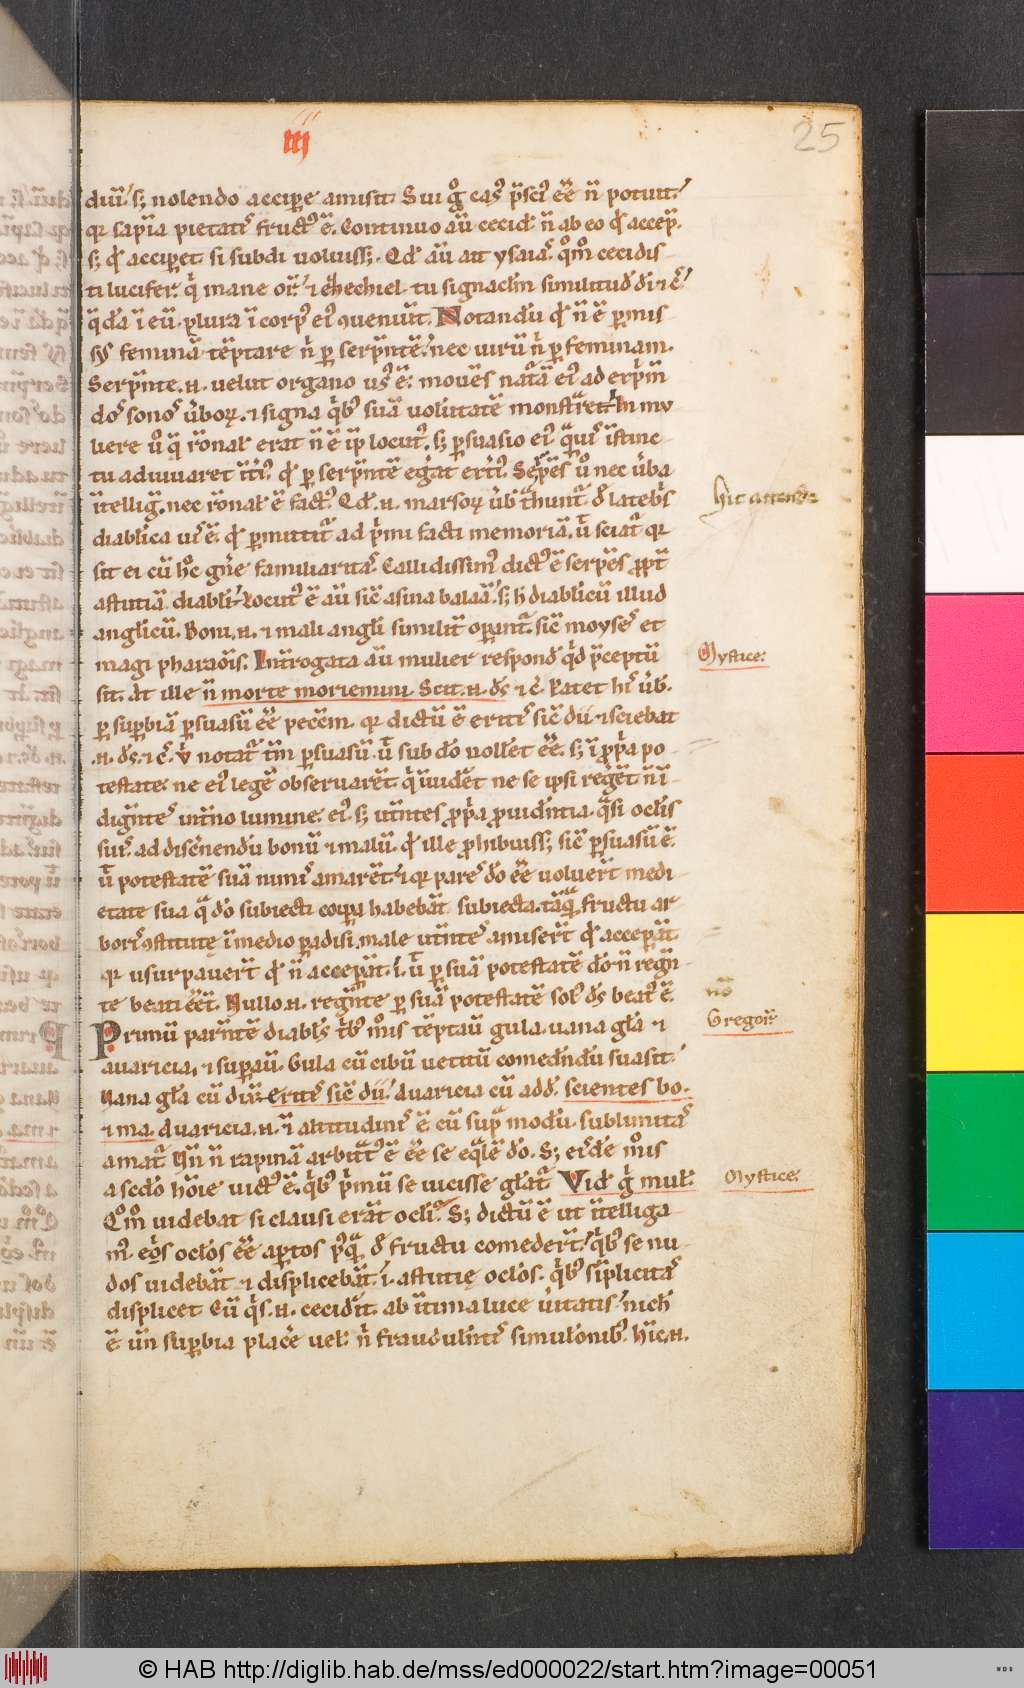 iii
25
diu᷑ s; nolendo accip̄e amisit. Sui g̊ cas9 p̄sci9 eē n̄ potuit.
qr sapīa pietatis fruct9 ē. Continuo aū cecid̄ n̄ ab eo qd̄ accep̄.
s; qd̄ accip̄et si subdi uoluiss;. Qd̄ aū ait ysaias. qm̊ cecidis
ti lucifer. q̇ mane or̄. ⁊ ezechiel. tu signacl̄m similitud̄ di ⁊ c̄.
q̄dā ī eū. plura ī corp9 ei9 ꝯueniūt. Notandū qd̄ n̄ ē p̄mis
sū feminā tēptare n̄ p serp̄ntē. nec uirū n̄ p feminam.
Serp̄nte .n. uelut organo us9 ē. mouēs nat̄ā ei9 ad exp̄m̄
dos sonos ūboꝝ. ⁊ signa q̇b9 suā uolūtatē monstrēt. In mu
liere ů q̄ rōnal̄ erat n̄ ē ip̄e locut9. s; p̄suasio ei9. q̄uis īstinc
tu adiuuaret īti9. qd̄ p serp̄ntē eḡat exti9. Serpēs ů nec ūba
ītelliḡ. nec rōnal̄ ē fact9. Qd̄ .n. marsoꝝ ūb t̄hunt̄ d̄ lateb̄s
diablica uis ē. qd̄ p̄mittit̄ ad p̄mi facti memoriā. ut̄ sciat̄ qr
sit ei cū hoc gn̄e familiaritas. Callidissim9 dict9 ē serpēs ꝓpt̄
astutiā diabli. Locut9 ē aū sic̄ asina balaā. s; h diablicū illud
anglicū. Boni .n. ⁊ mali angli similit̄ op̄ant̄. sic̄ moyses et
magi pharaōis. Int̄rogata aū mulier respond̄ qd̄ p̄ceptū
sit. At ille n̄ morte moriemini. Scit .n. ds̄ ⁊ c̄. Patet his ūb.
p sup̄biā p̄suasū eē pecc̄m. qr dictū ē eritis sic̄ dii ⁊ sciebat
.n. ds̄. ⁊ c̄. V̇ notat̄ t̄m p̄suasū. ut̄ sub dō noll̄et eē. s; ī ꝓp̄a po
testate. ne ei9 legē obseruarēt. q̇ īuidēt ne se ipsi regēt n̄ ī
dign̄tes int̄no lumine. ei9. s; ut̄ntes ꝓp̄a ꝓuid̄ntia. q̄si oclis
suis. ad discn̄endū bonū ⁊ malū. qd̄ ille ꝓhibuiss; sic̄ p̄suasū ē.
ut̄ potestatē suā nimis amarēt. ⁊ qr pares dō eē uoluer̄t medi
etate sua q̄ dō subiecti coꝝpa habebāt subiecta. tāq̄ fructu ar
boris ꝯstitutę ī medio padisi. male ut̄ntes amiser̄t qd̄ accep̄āt.
qr usurpauer̄t qd̄ n̄ accep̄āt. i. ut̄ p suā potestatē dō n̄ regn̄
te beati eēt. Nullo .n. regn̄te p suā potestatē sol9 ds̄ beat9 ē.
Primū par̄ntē diabl9 tb9 m̊is tēptau̅ gula. uana gl̄a ⁊
auaricia. ⁊ supau̅. Gula cū cibū uetitū comed̄ndū suasit.
Uana gl̄a cū dix̄. eritis sic̄ dii. Auaricia cū add̄. scientes bo.
⁊ ma. Auaricia .n. ī altitudinis ē cū sup̄ modū sublimitas
amat̄. Un̄ n̄ rapinā arbit̄t9 ē eē se eq̄lē dō. S; eisdē m̊is
a scdo hōie uict9 ē. q̇b9 p̄mū se uicisse gl̄at̄. Vid̄ g̊ mul̄.
Qm̊ uidebat si clausi erāt ocli? S; dictū ē ut ītelliga
m9. eos oclos eē ap̄tos p9q̄ d̄ fructu comeder̄t. q̇b9 se nu
dos uidebāt ⁊ displicebāt. i. astutię oclos. q̇b9 sīplicitas
displicet. Cū q̇s .n. cecidit ab ītima luce ūitatis. nich
ē un̄ sup̄bia placē uel. n̄ fraudul̄ntis simul̄onib9. Hinc .n.
hic attende
Mystice:
no̅
Gregori9.
Mystice:
© HAB http://diglib.hab.de/mss/ed000022/start.htm?image=00051